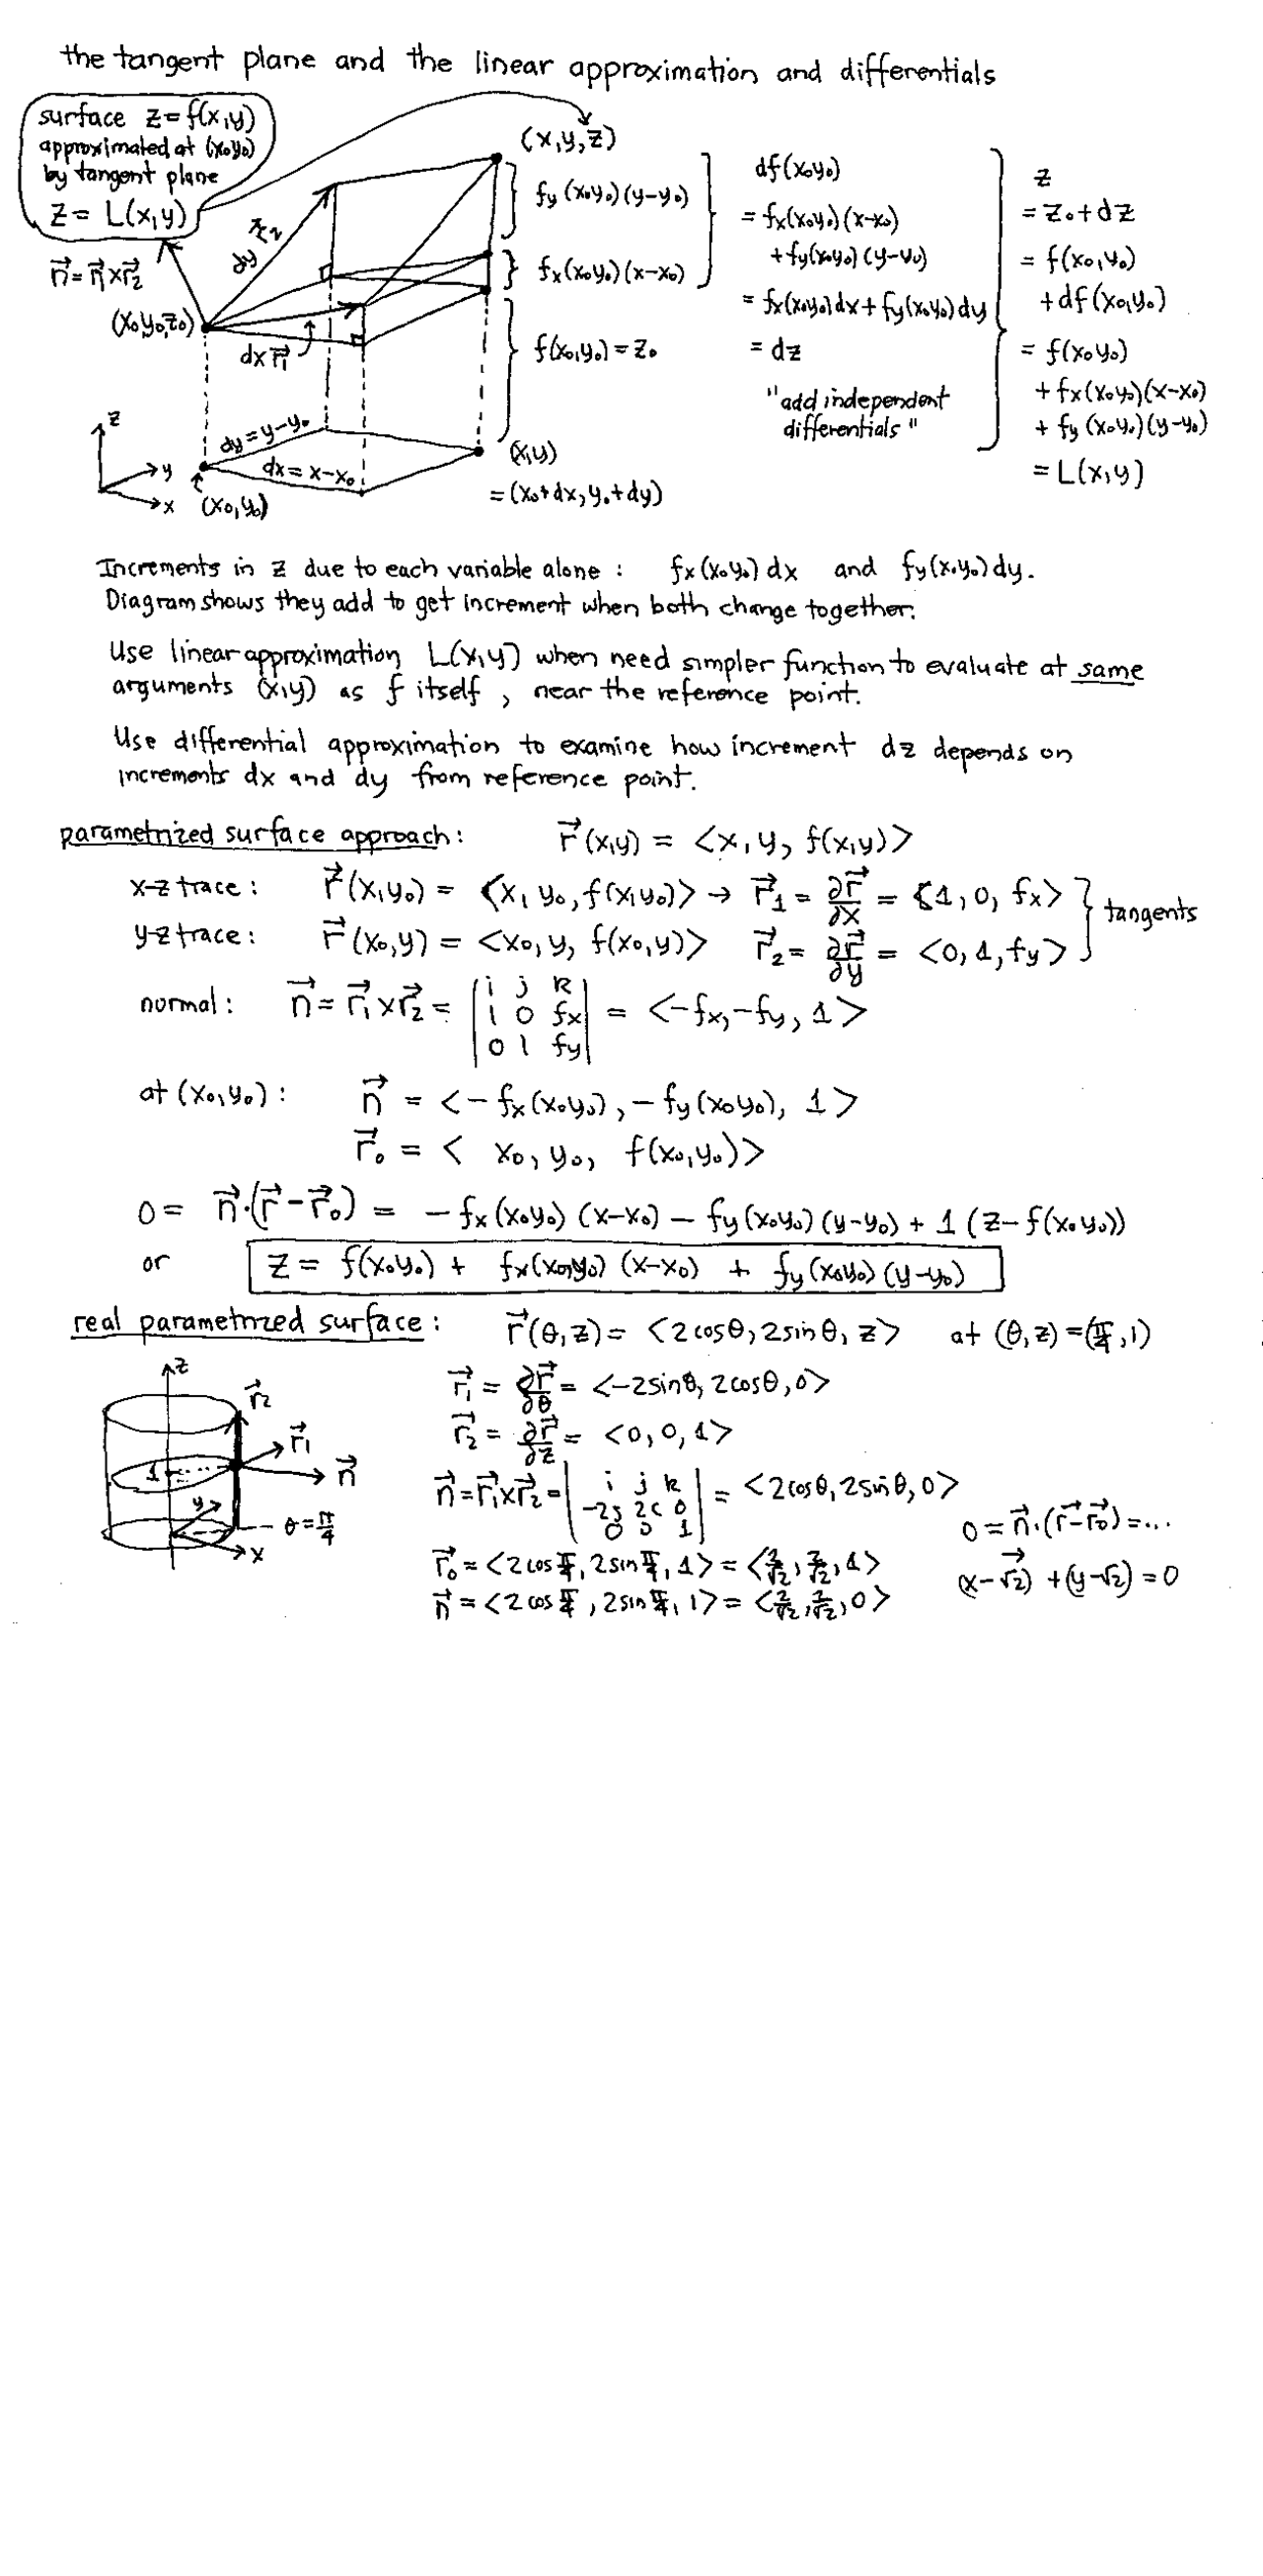 the tangent plane and the linear approximation and differentials
surface z = f(x,y)
approximated at (x₀,y₀)
by tangent plane
z = L(x,y)
n⃗ = r⃗₁ × r⃗₂
(x₀,y₀,z₀)
dy r⃗₂
dx r⃗₁
(x,y,z)
f_y(x₀,y₀)(y-y₀)
f_x(x₀,y₀)(x-x₀)
f(x₀,y₀) = z₀
z
y
x
dy = y-y₀
dx = x-x₀
(x₀,y₀)
(x,y)
= (x₀+dx, y₀+dy)
df(x₀,y₀)
= f_x(x₀,y₀)(x-x₀)
+ f_y(x₀,y₀)(y-y₀)
= f_x(x₀,y₀)dx + f_y(x₀,y₀)dy
= dz
"add independent
differentials"
z
= z₀ + dz
= f(x₀,y₀)
+ df(x₀,y₀)
= f(x₀,y₀)
+ f_x(x₀,y₀)(x-x₀)
+ f_y(x₀,y₀)(y-y₀)
= L(x,y)
Increments in z due to each variable alone : f_x(x₀,y₀) dx and f_y(x₀,y₀) dy.
Diagram shows they add to get increment when both change together.
Use linear approximation L(x,y) when need simpler function to evaluate at same
arguments (x,y) as f itself, near the reference point.
Use differential approximation to examine how increment dz depends on
increments dx and dy from reference point.
parametrized surface approach: r⃗(x,y) = <x, y, f(x,y)>
x-z trace: r⃗(x,y₀) = <x, y₀, f(x,y₀)> → r⃗₁ = ∂r⃗/∂x = <1, 0, f_x> } tangents
y-z trace: r⃗(x₀,y) = <x₀, y, f(x₀,y)> r⃗₂ = ∂r⃗/∂y = <0, 1, f_y>
normal: n⃗ = r⃗₁ × r⃗₂ = | i j k | = <-f_x, -f_y, 1>
| 1 0 f_x |
| 0 1 f_y |
at (x₀,y₀): n⃗ = <-f_x(x₀,y₀), -f_y(x₀,y₀), 1>
r⃗₀ = < x₀, y₀, f(x₀,y₀)>
0 = n⃗·(r⃗-r⃗₀) = -f_x(x₀,y₀)(x-x₀) - f_y(x₀,y₀)(y-y₀) + 1 (z-f(x₀,y₀))
or z = f(x₀,y₀) + f_x(x₀,y₀)(x-x₀) + f_y(x₀,y₀)(y-y₀)
real parametrized surface: r⃗(θ,z) = <2cosθ, 2sinθ, z> at (θ,z) = (π/4, 1)
z
r⃗₂
r⃗₁
n⃗
1
y
θ = π/4
x
r⃗₁ = ∂r⃗/∂θ = <-2sinθ, 2cosθ, 0>
r⃗₂ = ∂r⃗/∂z = <0, 0, 1>
n⃗ = r⃗₁ × r⃗₂ = | i j k | = <2cosθ, 2sinθ, 0>
-2s 2c 0
0 0 1
r⃗₀ = <2cos π/4, 2sin π/4, 1> = <2/√2, 2/√2, 1>
n⃗ = <2cos π/4, 2sin π/4, 1> = <2/√2, 2/√2, 0>
0 = n⃗·(r⃗-r⃗₀) = ...
(x-√2) + (y-√2) = 0